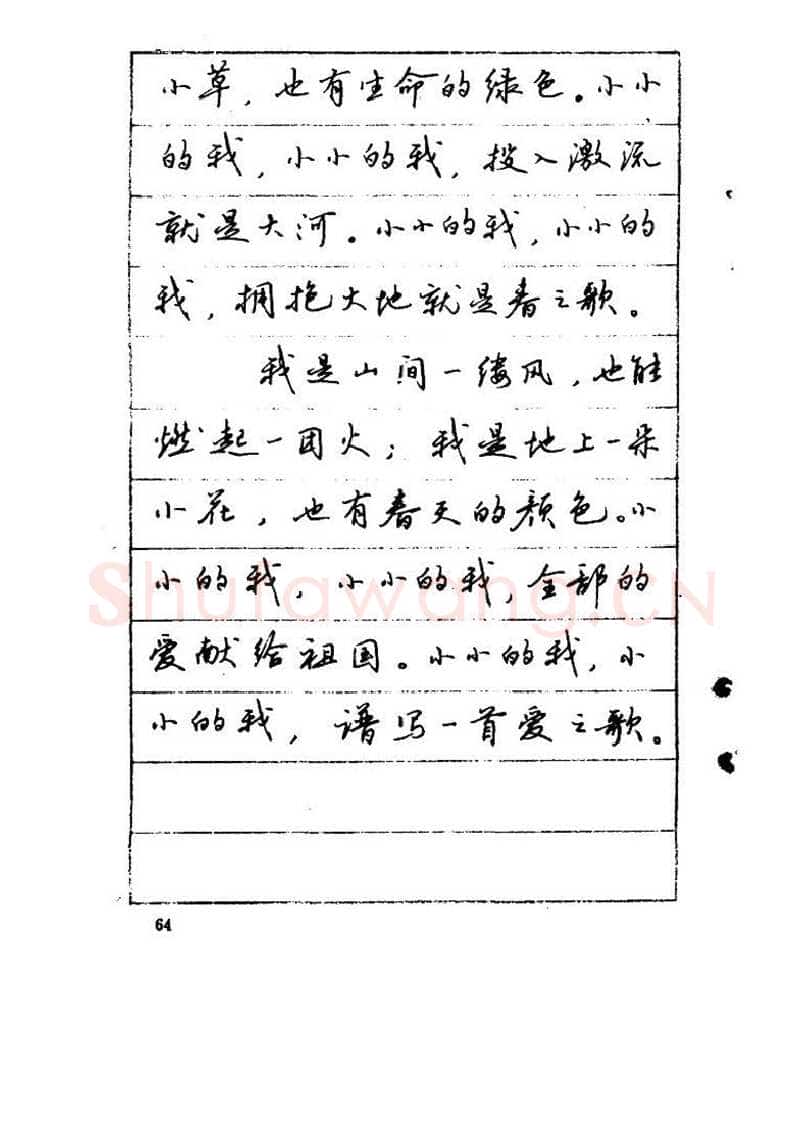 小草，也有生命的绿色。小小
的我，小小的我，投入激流
就是大河。小小的我，小小的
我，拥抱大地就是春之歌。
我是山间一缕风，也能
燃起一团火；我是地上一朵
小花，也有春天的颜色。小
小的我，小小的我，全部的
爱献给祖国。小小的我，小
小的我，谱写一首爱之歌。
Shufawang.CN
64